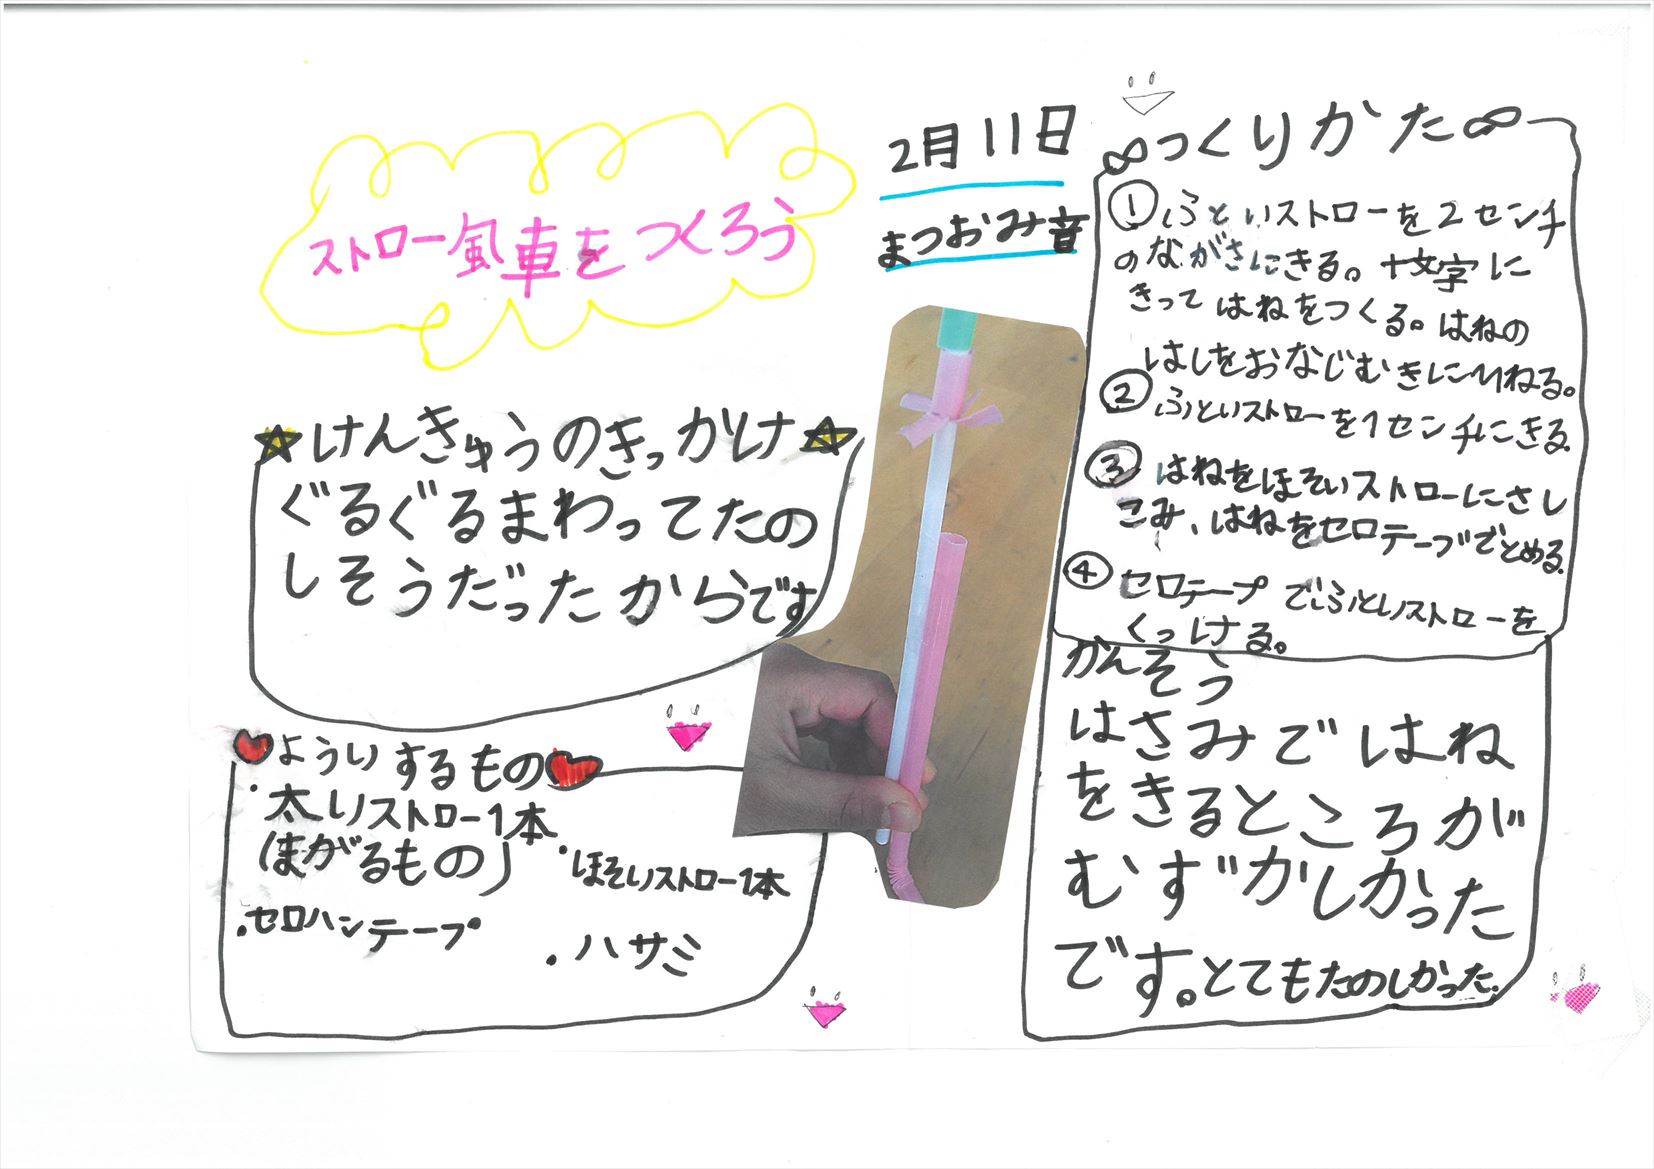 ストロー風車をつくろう
2月11日
まつおみ音
けんきゅうのきっかけ
ぐるぐるまわってたの
しそうだったからです
よういするもの
・太いストロー1本
(まがるもの)
・ほそいストロー1本
・セロハンテープ
・ハサミ
∞つくりかた∞
①ふといストローを2センチ
のながさにきる。十文字に
きってはねをつくる。はねの
はしをおなじむきにひねる。
②ふといストローを1センチにきる
③はねをほそいストローにさし
こみ、はねをセロテープでとめる
④セロテープでふといストローを
くっける。
かんそう
はさみではね
をきるところが
むずかしかった
です。とてもたのしかった.